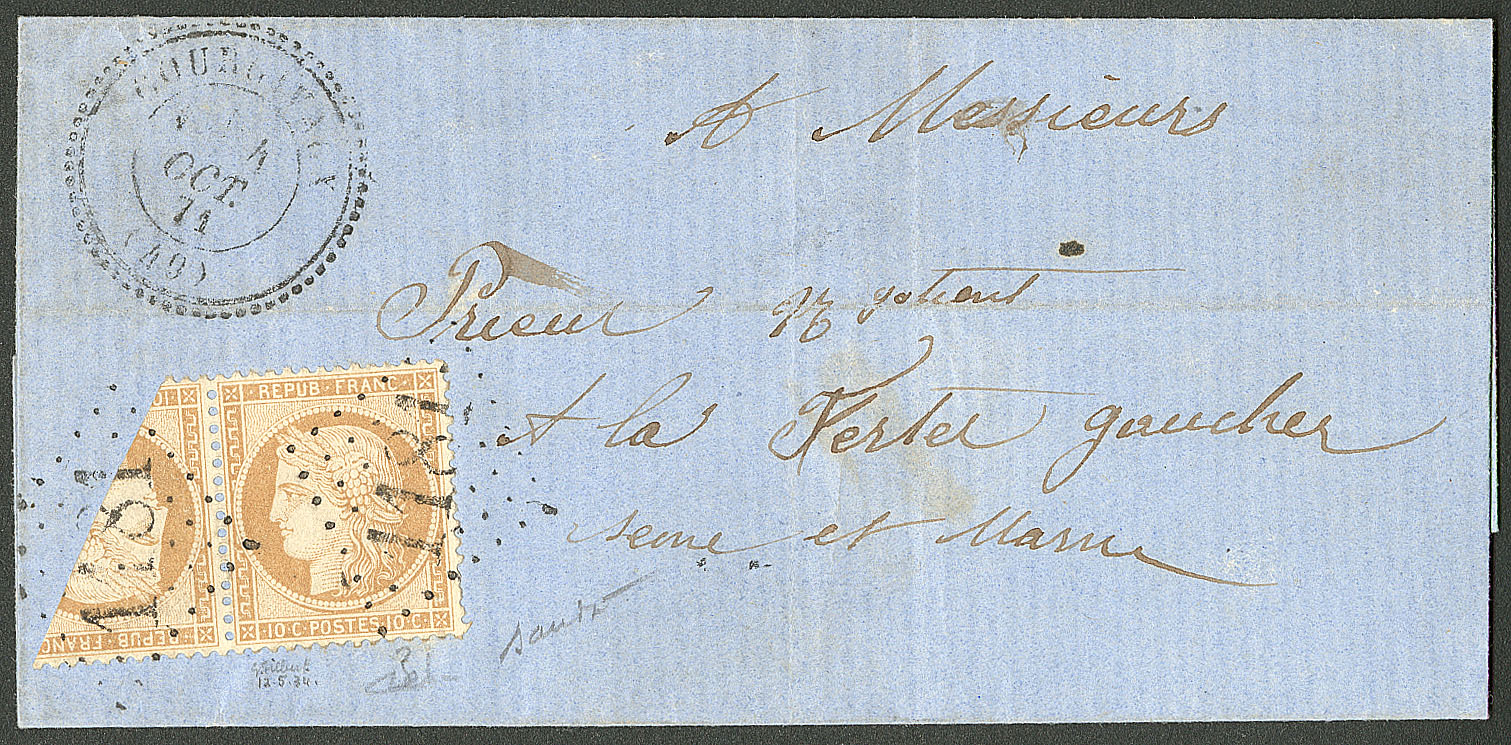 COURGIVAUX
4
OCT.
71
(49)
A Messieurs
Prieur Negotient
A la Ferter gaucher
seine et Marne
REPUB · FRANC ·
10·C·POSTES·10·C
REPUB · FRANC
1181
1181
12.5.34.